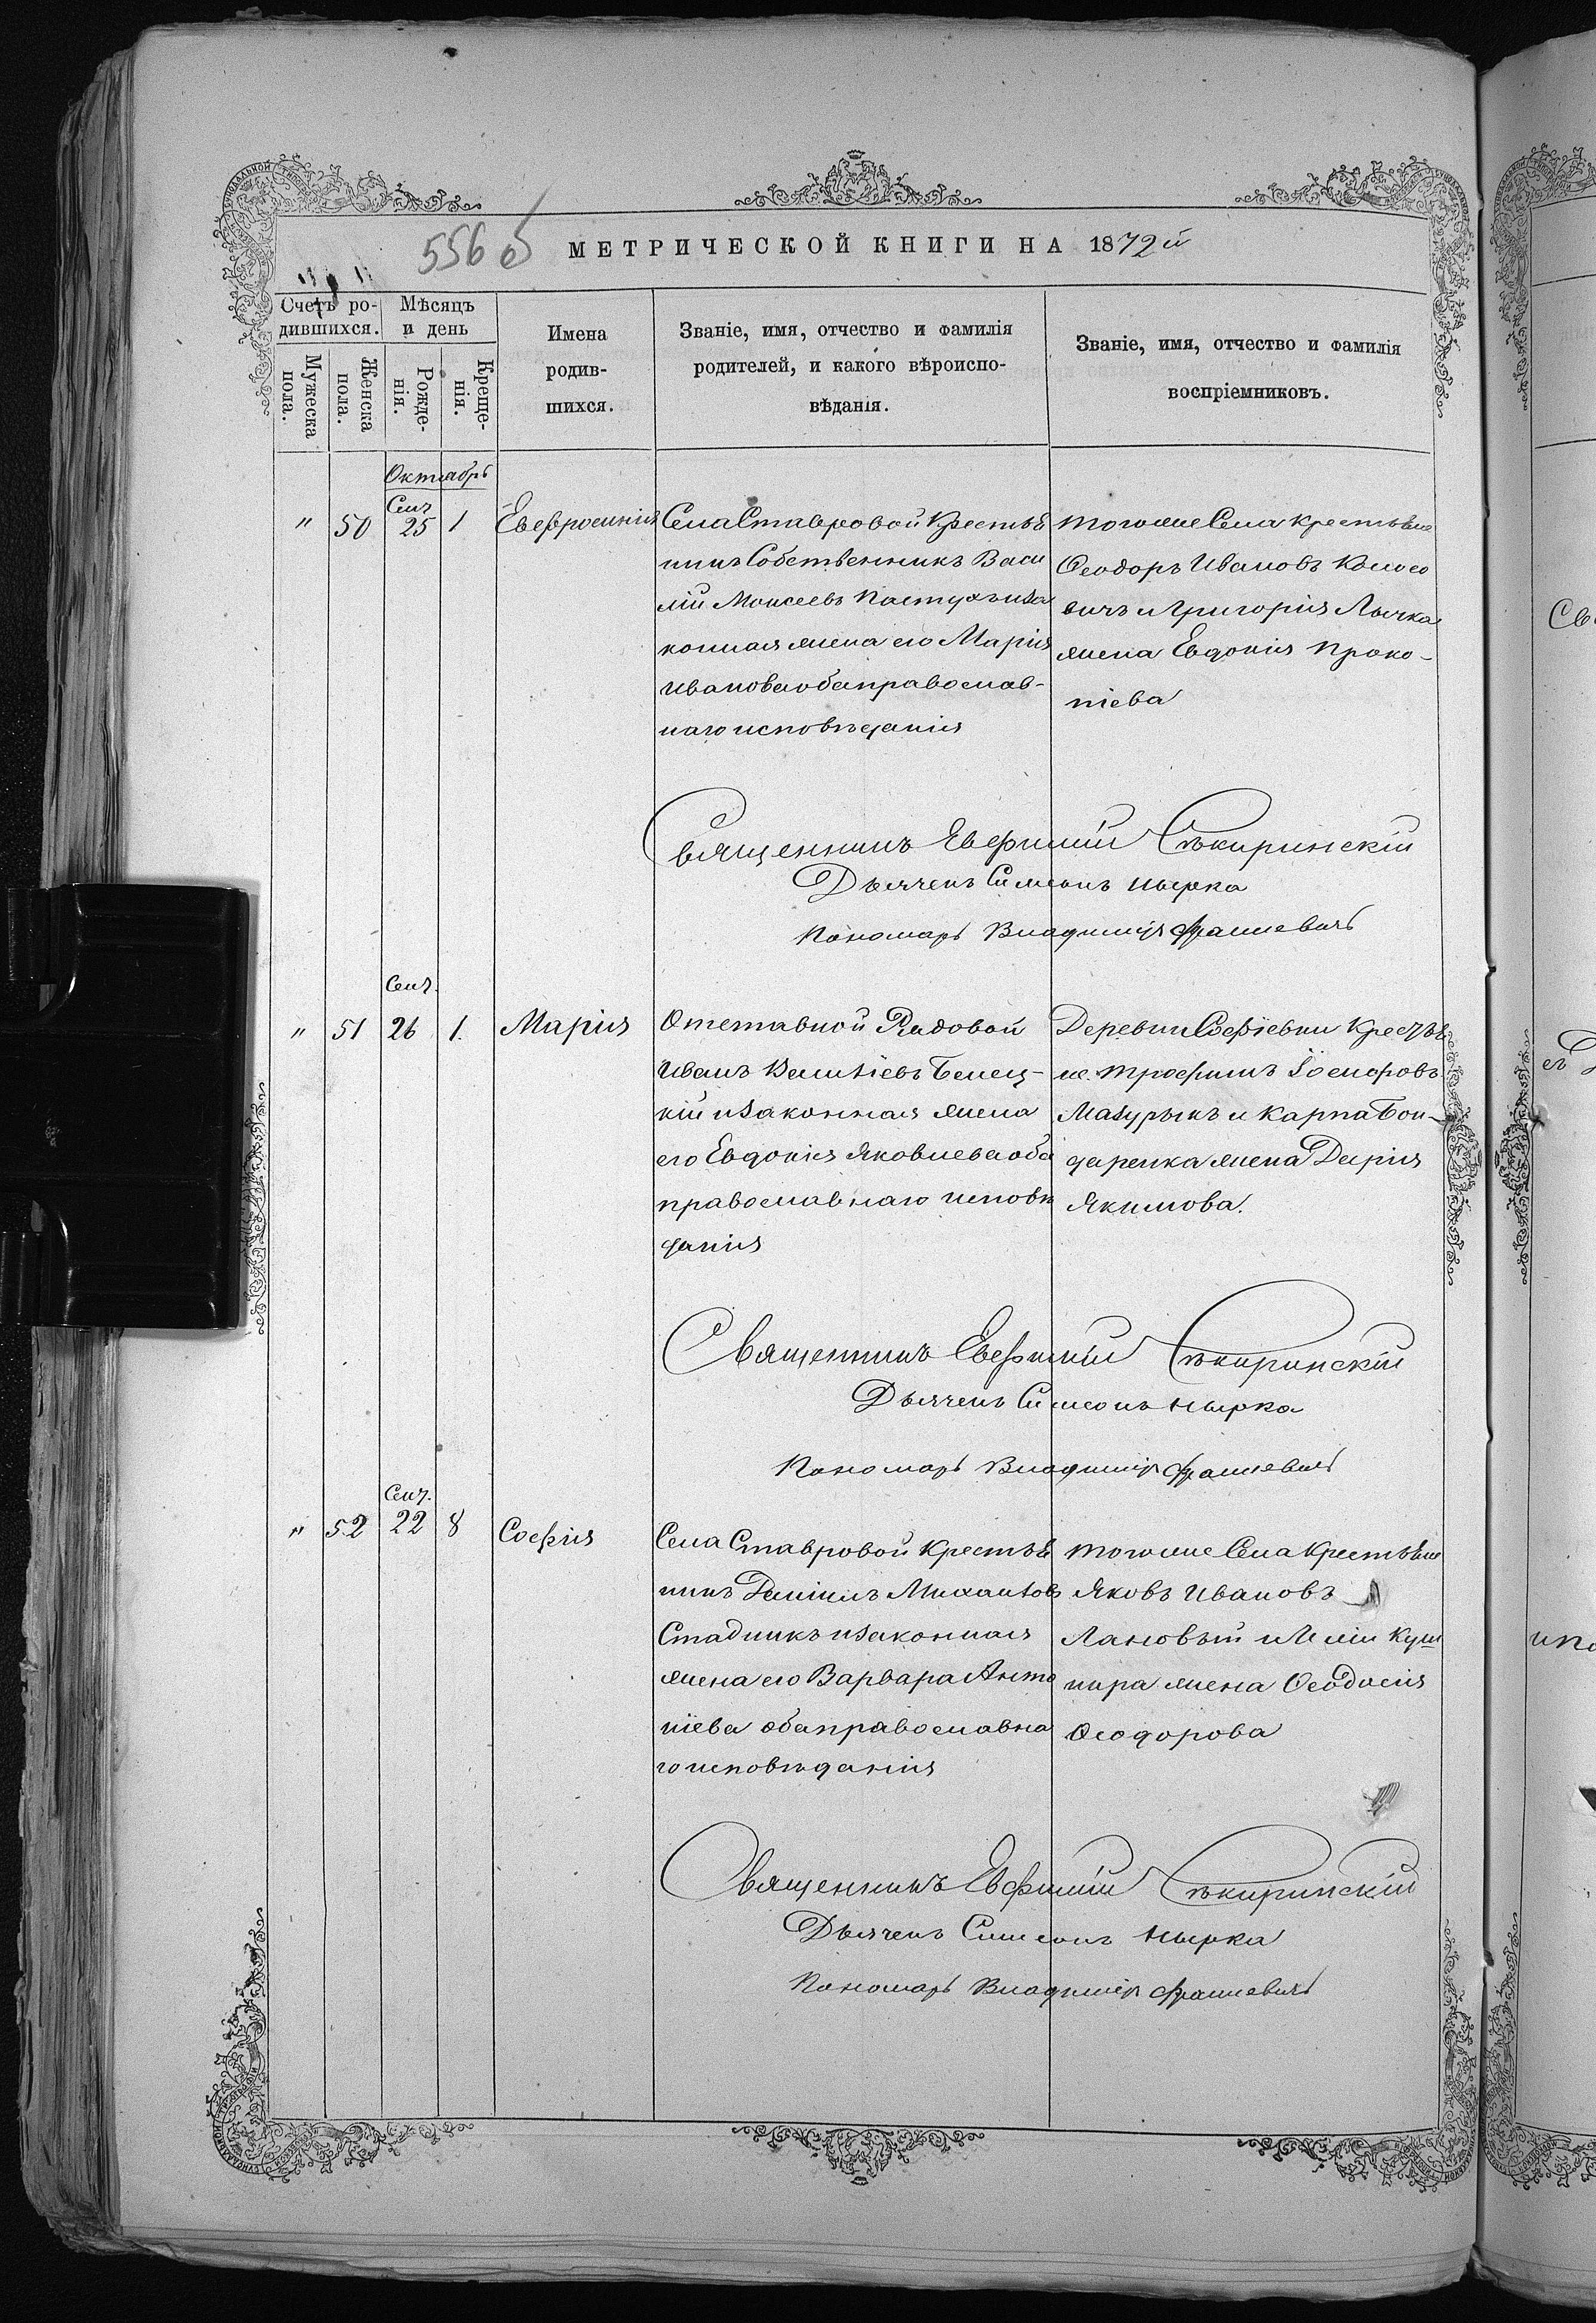 556 б
МЕТРИЧЕСКОЙ КНИГИ НА 1872 й
Счетъ ро-
дившихся.
Мѣсяцъ
и день
Мужеска
пола.
Женска
пола.
Рожде-
нія.
Креще-
нія.
Имена
родив-
шихся.
Званіе, имя, отчество и фамилія
родителей, и какого вѣроиспо-
вѣданія.
Званіе, имя, отчество и фамилія
воспріемниковъ.
Октябрь
" 50 Сент. 25 1 Евфросинія
Села Ставровой Крестья
нинъ Собственникъ Васи
лій Моисеевъ Пастухъ и за
конная жена его Марія
Иванова оба православ-
наго исповѣданія
Тогоже Села крестьяне
Ѳеодоръ Ивановъ
вичъ и Григорія Лычка
жена Евдокія Проко-
піева
Священникъ Евфимій Сѣкиринскій
Дьячекъ Симеонъ Нырка
Пономарь Владиміръ
Сент.
" 51 26 1. Марія
Отставной Рядовой
Иванъ Василіевъ Белец-
кій и законная жена
его Евдокія Яковлева оба
православнаго исповѣ
данія
Деревни Софіевки Крестья
не. Трофимъ Іосифовъ
Мазурыкъ и Карпа Бон-
даренка жена Дарія
Якимова.
Священникъ Евфимій Сѣкиринскій
Дьячекъ Симеонъ Нырка
Пономарь Владиміръ
Сент.
" 52 22 8 Софія
Села Ставровой Крестья
нинъ Даніилъ Михаиловъ
Стадникъ и законная
жена его Варвара Анто
ніева оба православна
го исповѣданія
Тогоже Села Крестьяне
Яковъ Ивановъ
Лановый и Иліи Куш
нира жена Ѳеодосія
Ѳеодорова
Священникъ Евфимій Сѣкиринскій
Дьячекъ Симеонъ Нырка
Пономарь Владиміръ